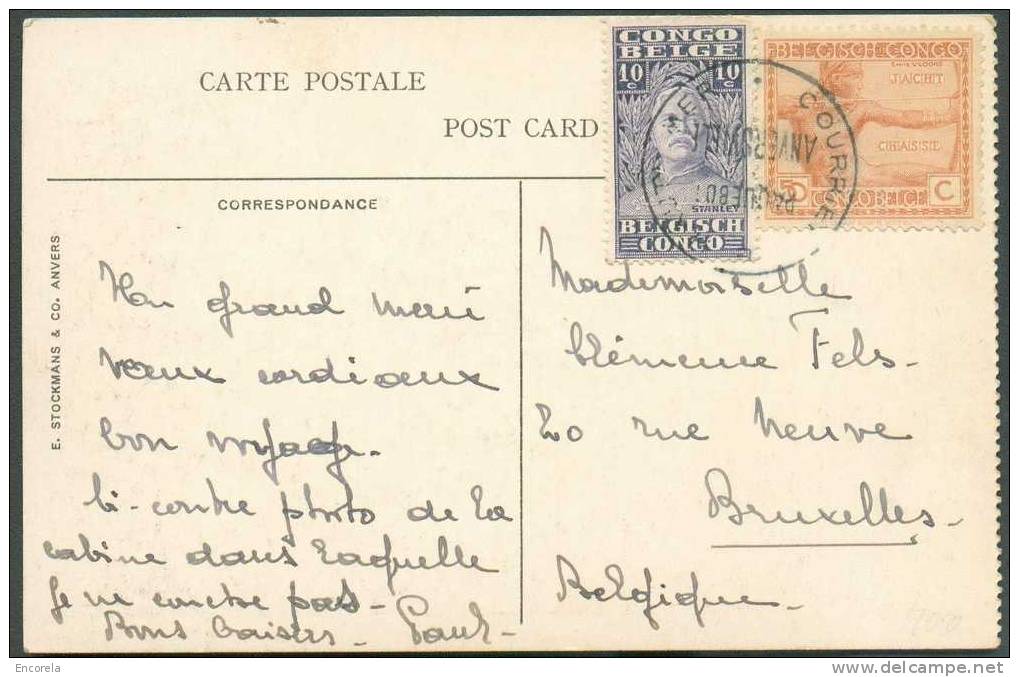 CARTE POSTALE
POST CARD
CORRESPONDANCE
E. STOCKMANS & CO. ANVERS
CONGO
BELGE
10 c 10 c
STANLEY
BELGISCH
CONGO
BELGISCH CONGO
JACHT
CHASSE
5 C
CONGO BELGE
ANVERSVILLE
PAQUEBOT
Mon grand merci
vœux cordiaux
bon voyage.
Ci-contre photo de la
cabine dans laquelle
je ne couche pas -
Bons baisers - Paul -
Mademoiselle
Clémence Fels -
20 rue Neuve
Bruxelles -
Belgique -
Encorela
delcampe.net